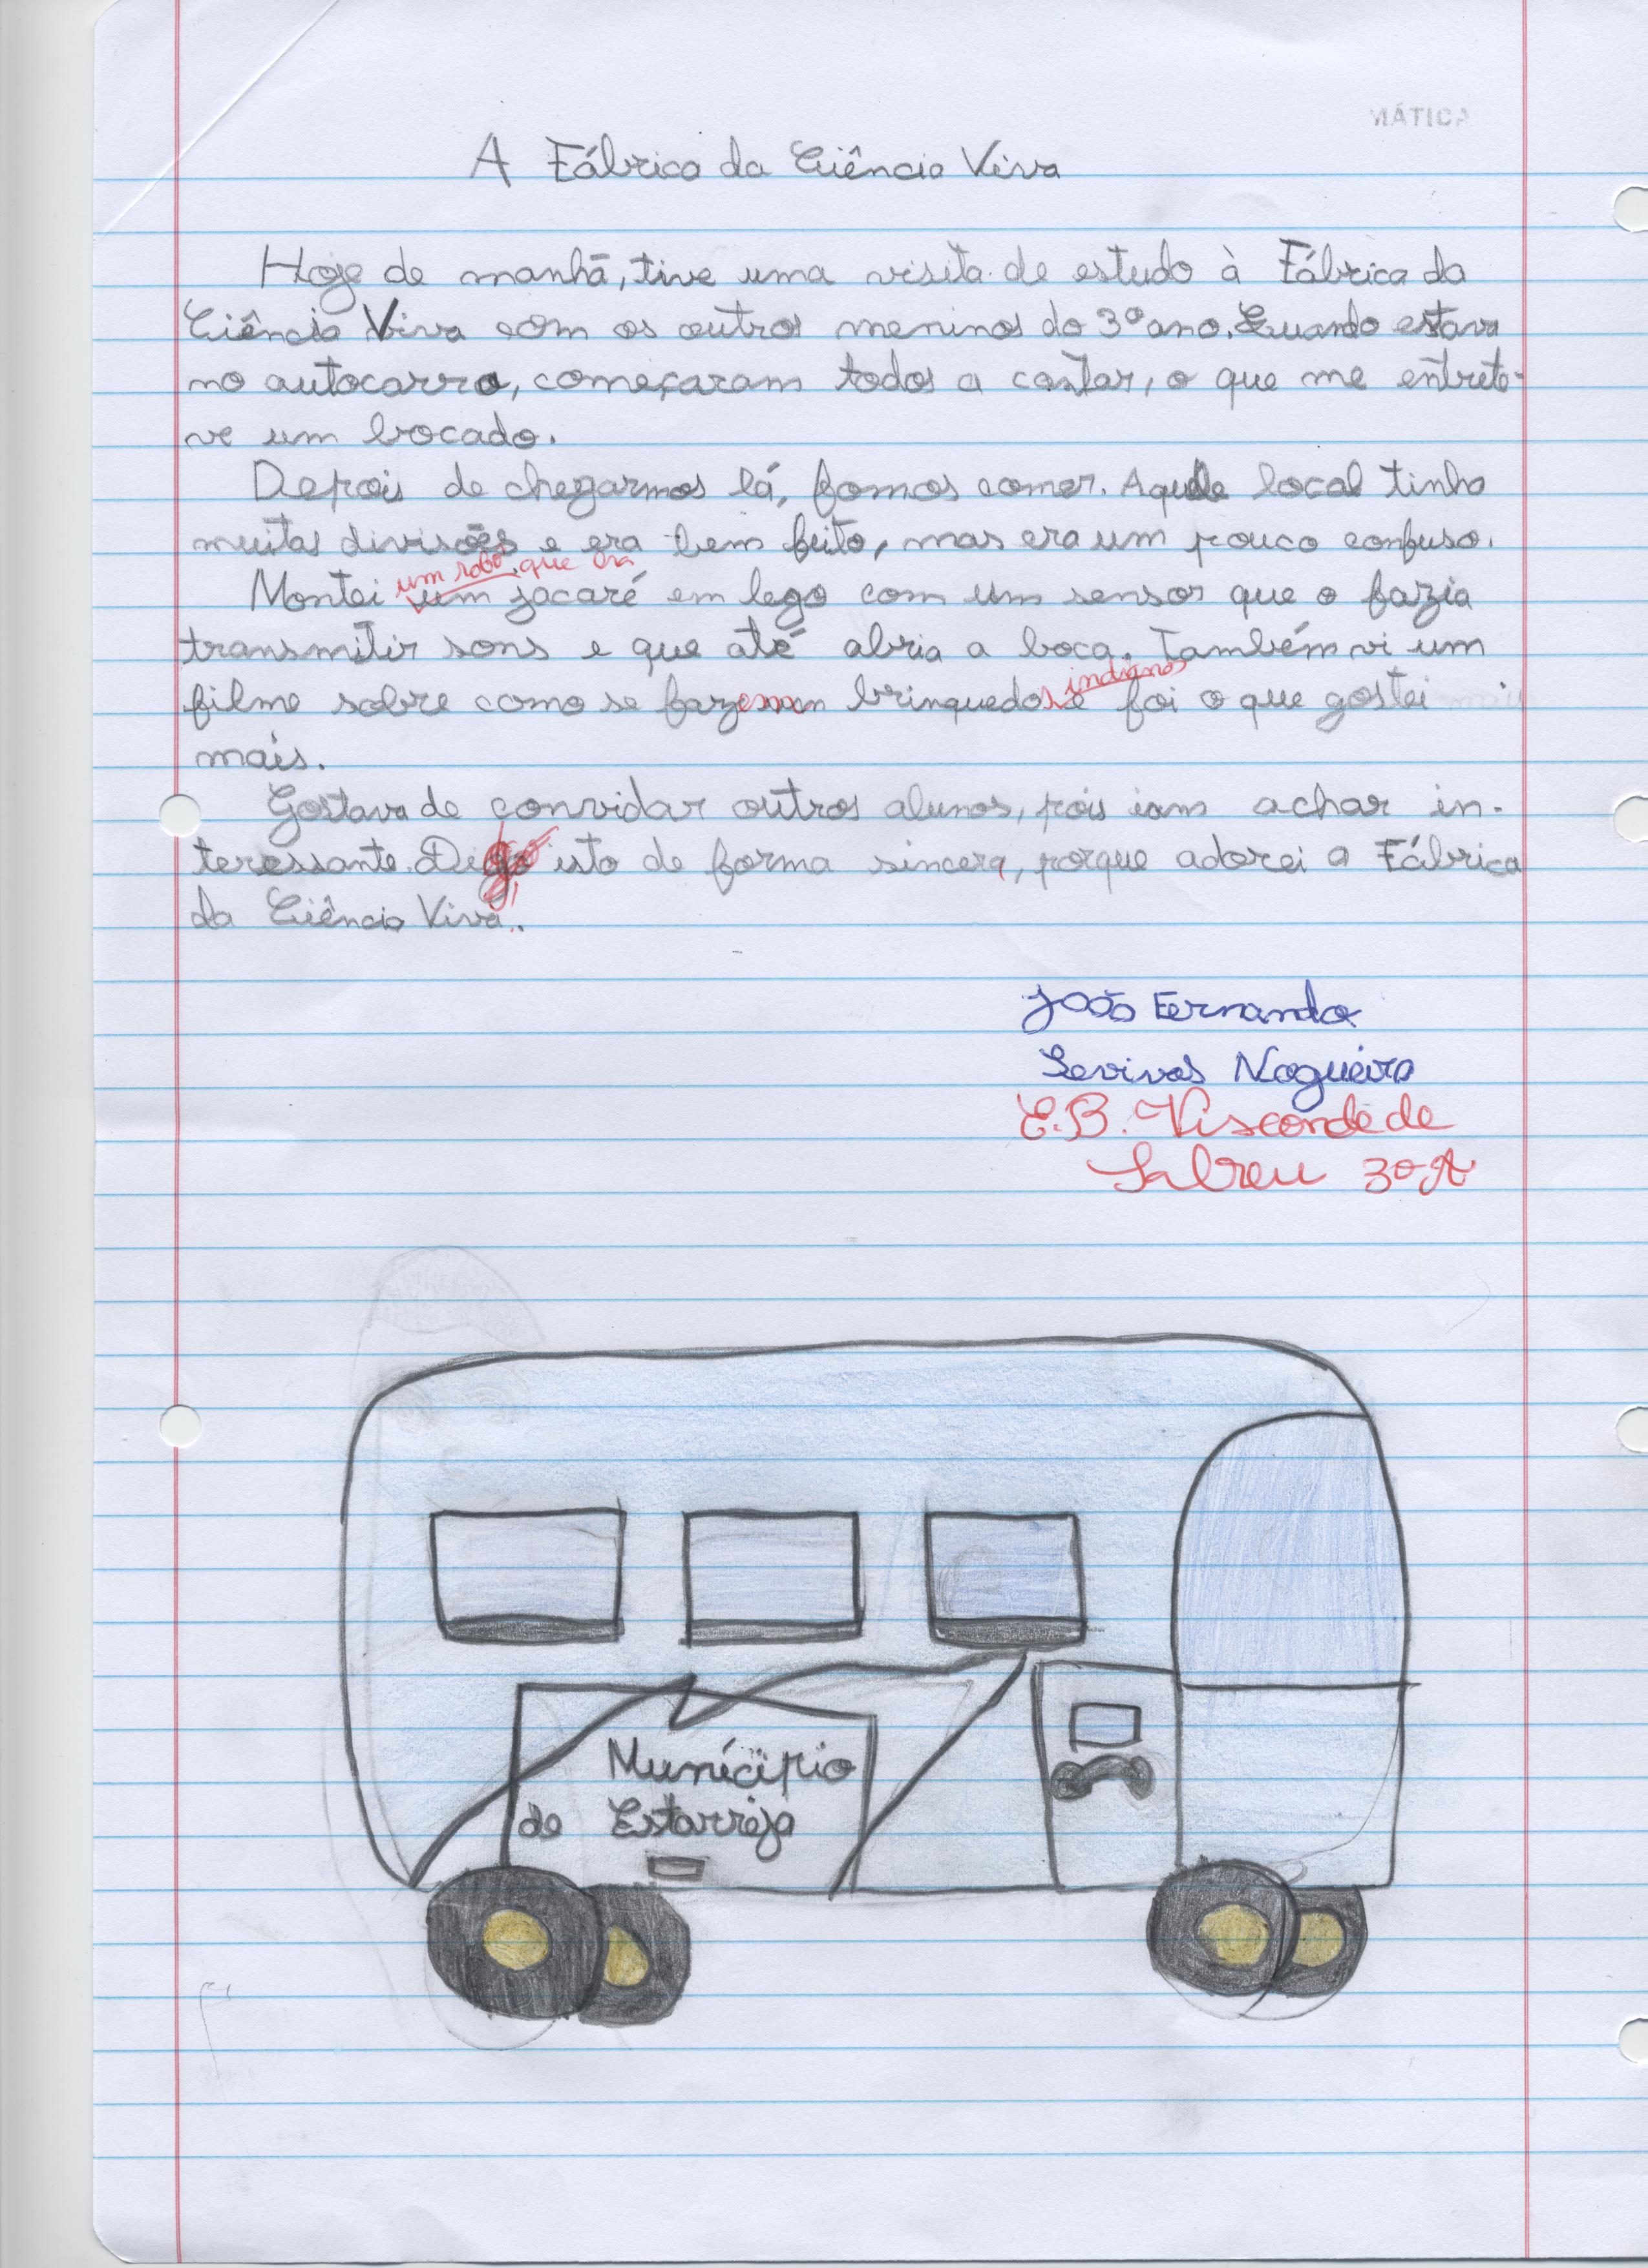 MÁTICA
A Fábrica da Ciência Viva
Hoje de manhã, tive uma visita de estudo à Fábrica da
Ciência Viva com os outros meninos do 3º ano. Quando estava
no autocarro, começaram todos a cantar, o que me entrete-
ve um bocado.
Depois de chegarmos lá, fomos comer. Aquele local tinha
muitas divisões e era bem feito, mas era um pouco confuso.
um robô que era
Montei um jacaré em lego com um sensor que o fazia
transmitir sons e que até abria a boca. Também vi um
indianos
filme sobre como se fazem brinquedos e foi o que gostei mais
mais.
Gostava de convidar outros alunos, pois iam achar in-
teressante. Digo isto de forma sincera, porque adorei a Fábrica
da Ciência Viva.
João Fernando
Nogueira
E.B. Visconde de
Salreu 3º A
Munícipio
de Estarreja